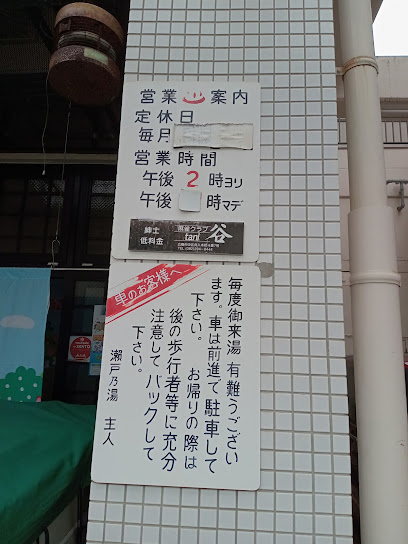 営業♨案内
定休日
毎月
営業時間
午後2時ヨリ
午後 時マデ
紳士
低料金
麻雀クラブ
tani 谷
車のお客様へ
毎度御来湯 有難うござい
ます。車は前進で駐車して
下さい。 お帰りの際は
後の歩行者等に充分
注意してバックして
下さい。
瀬戸乃湯 主人